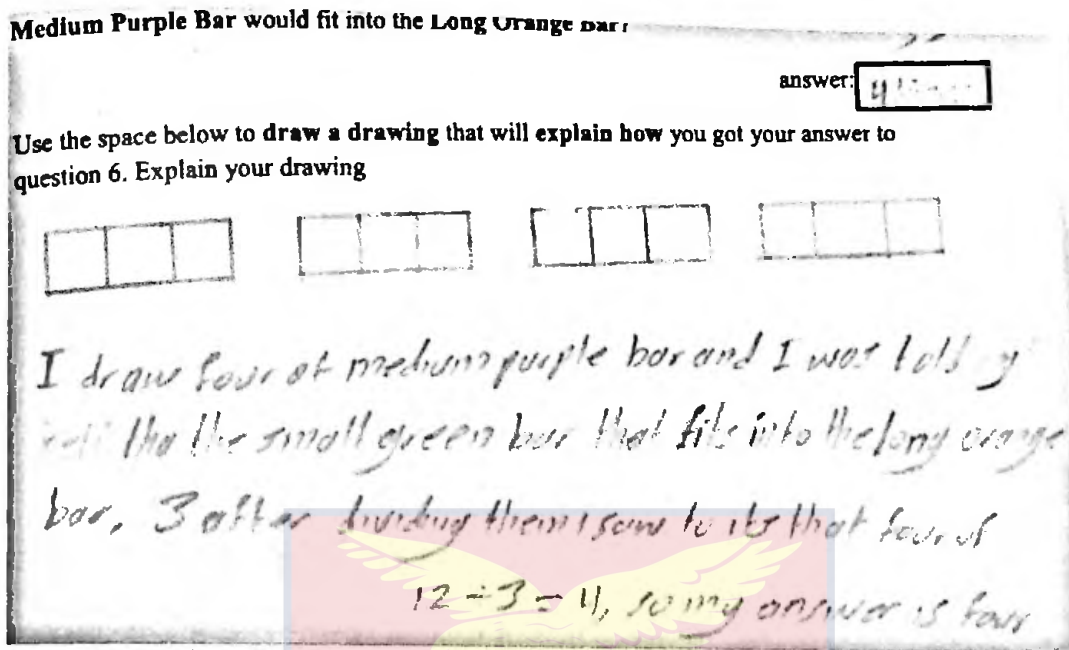 Medium Purple Bar would fit into the Long Orange Bar?
answer: 4
Use the space below to draw a drawing that will explain how you got your answer to
question 6. Explain your drawing
I draw four of medium purple bar and I was told
the small green bar that fits into the long orange
bar, 3 after dividing them I saw that four of
12 ÷ 3 = 4, so my answer is four